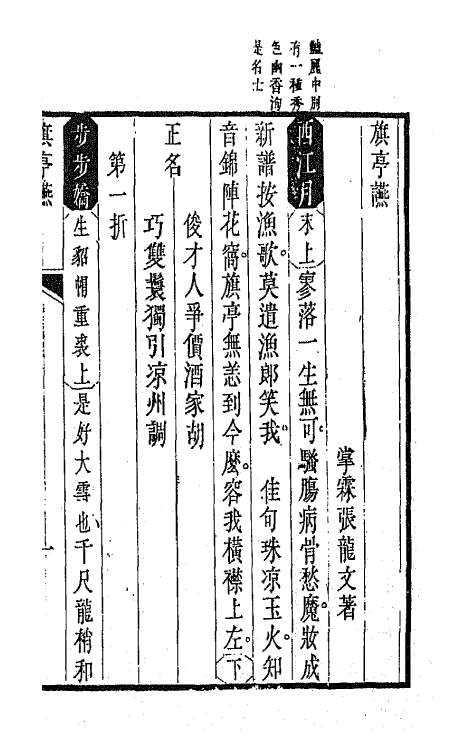 艷麗中別
有一種秀
色幽香洵
是名士
旗亭讌
掌霖張龍文著
西江月
末上寥落一生無可騷膓病骨愁魔妝成
新譜按漁歌莫遣漁郎笑我 佳句珠凉玉火知
音錦陣花窩旗亭無恙到今麽容我橫襟上左下
俊才人爭價酒家胡
正名
巧雙鬟獨引凉州調
第一折
步步嬌
生貂帽重裘上是好大雪也千尺龍梢和
旗亭讌
一